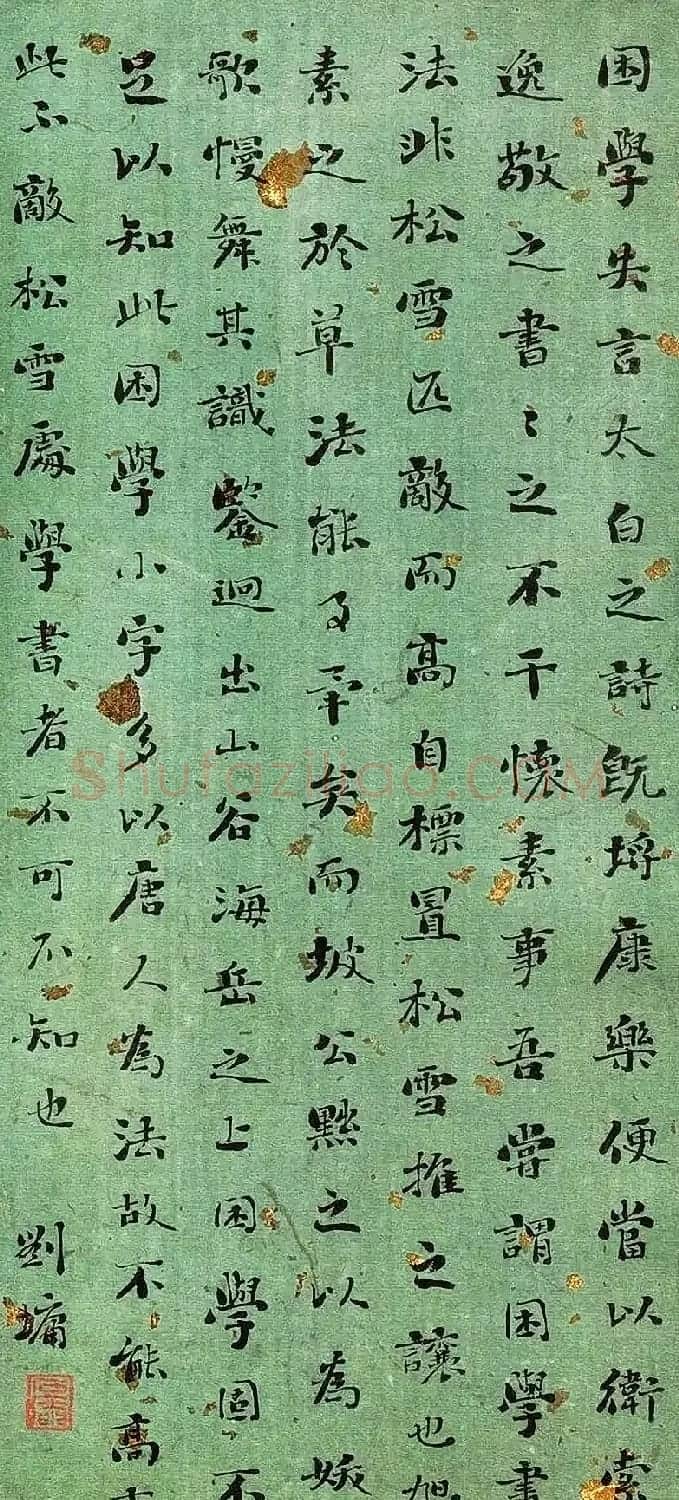 困學失言太白之詩既埒康樂便當以衛索
逸敬之書〻之不干懷素事吾嘗謂困學書
法非松雪匹敵而高自標置松雪推之讓也旭
素之於草法能矣而坡公黜之以為妖
歌慢舞其識鑒迥出山谷海岳之上困學固不
足以知此困學小字多以唐人為法故不能高
此不敵松雪處學書者不可不知也 劉墉
石庵
Shufaziliao.COM